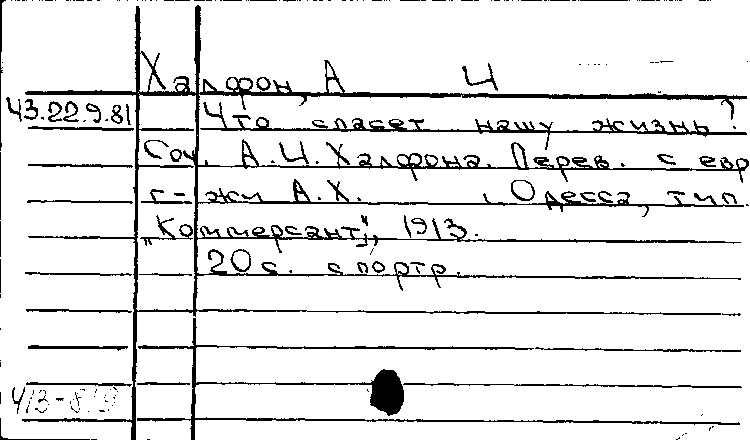 Халфон, А Ч
43.22.9.81 Что спасет нашу жизнь?
Соч. А.Ч. Халфона. Перев. с евр
г-жи А.Х. Одесса, тип.
„Коммерсант", 1913.
20 с. с портр.